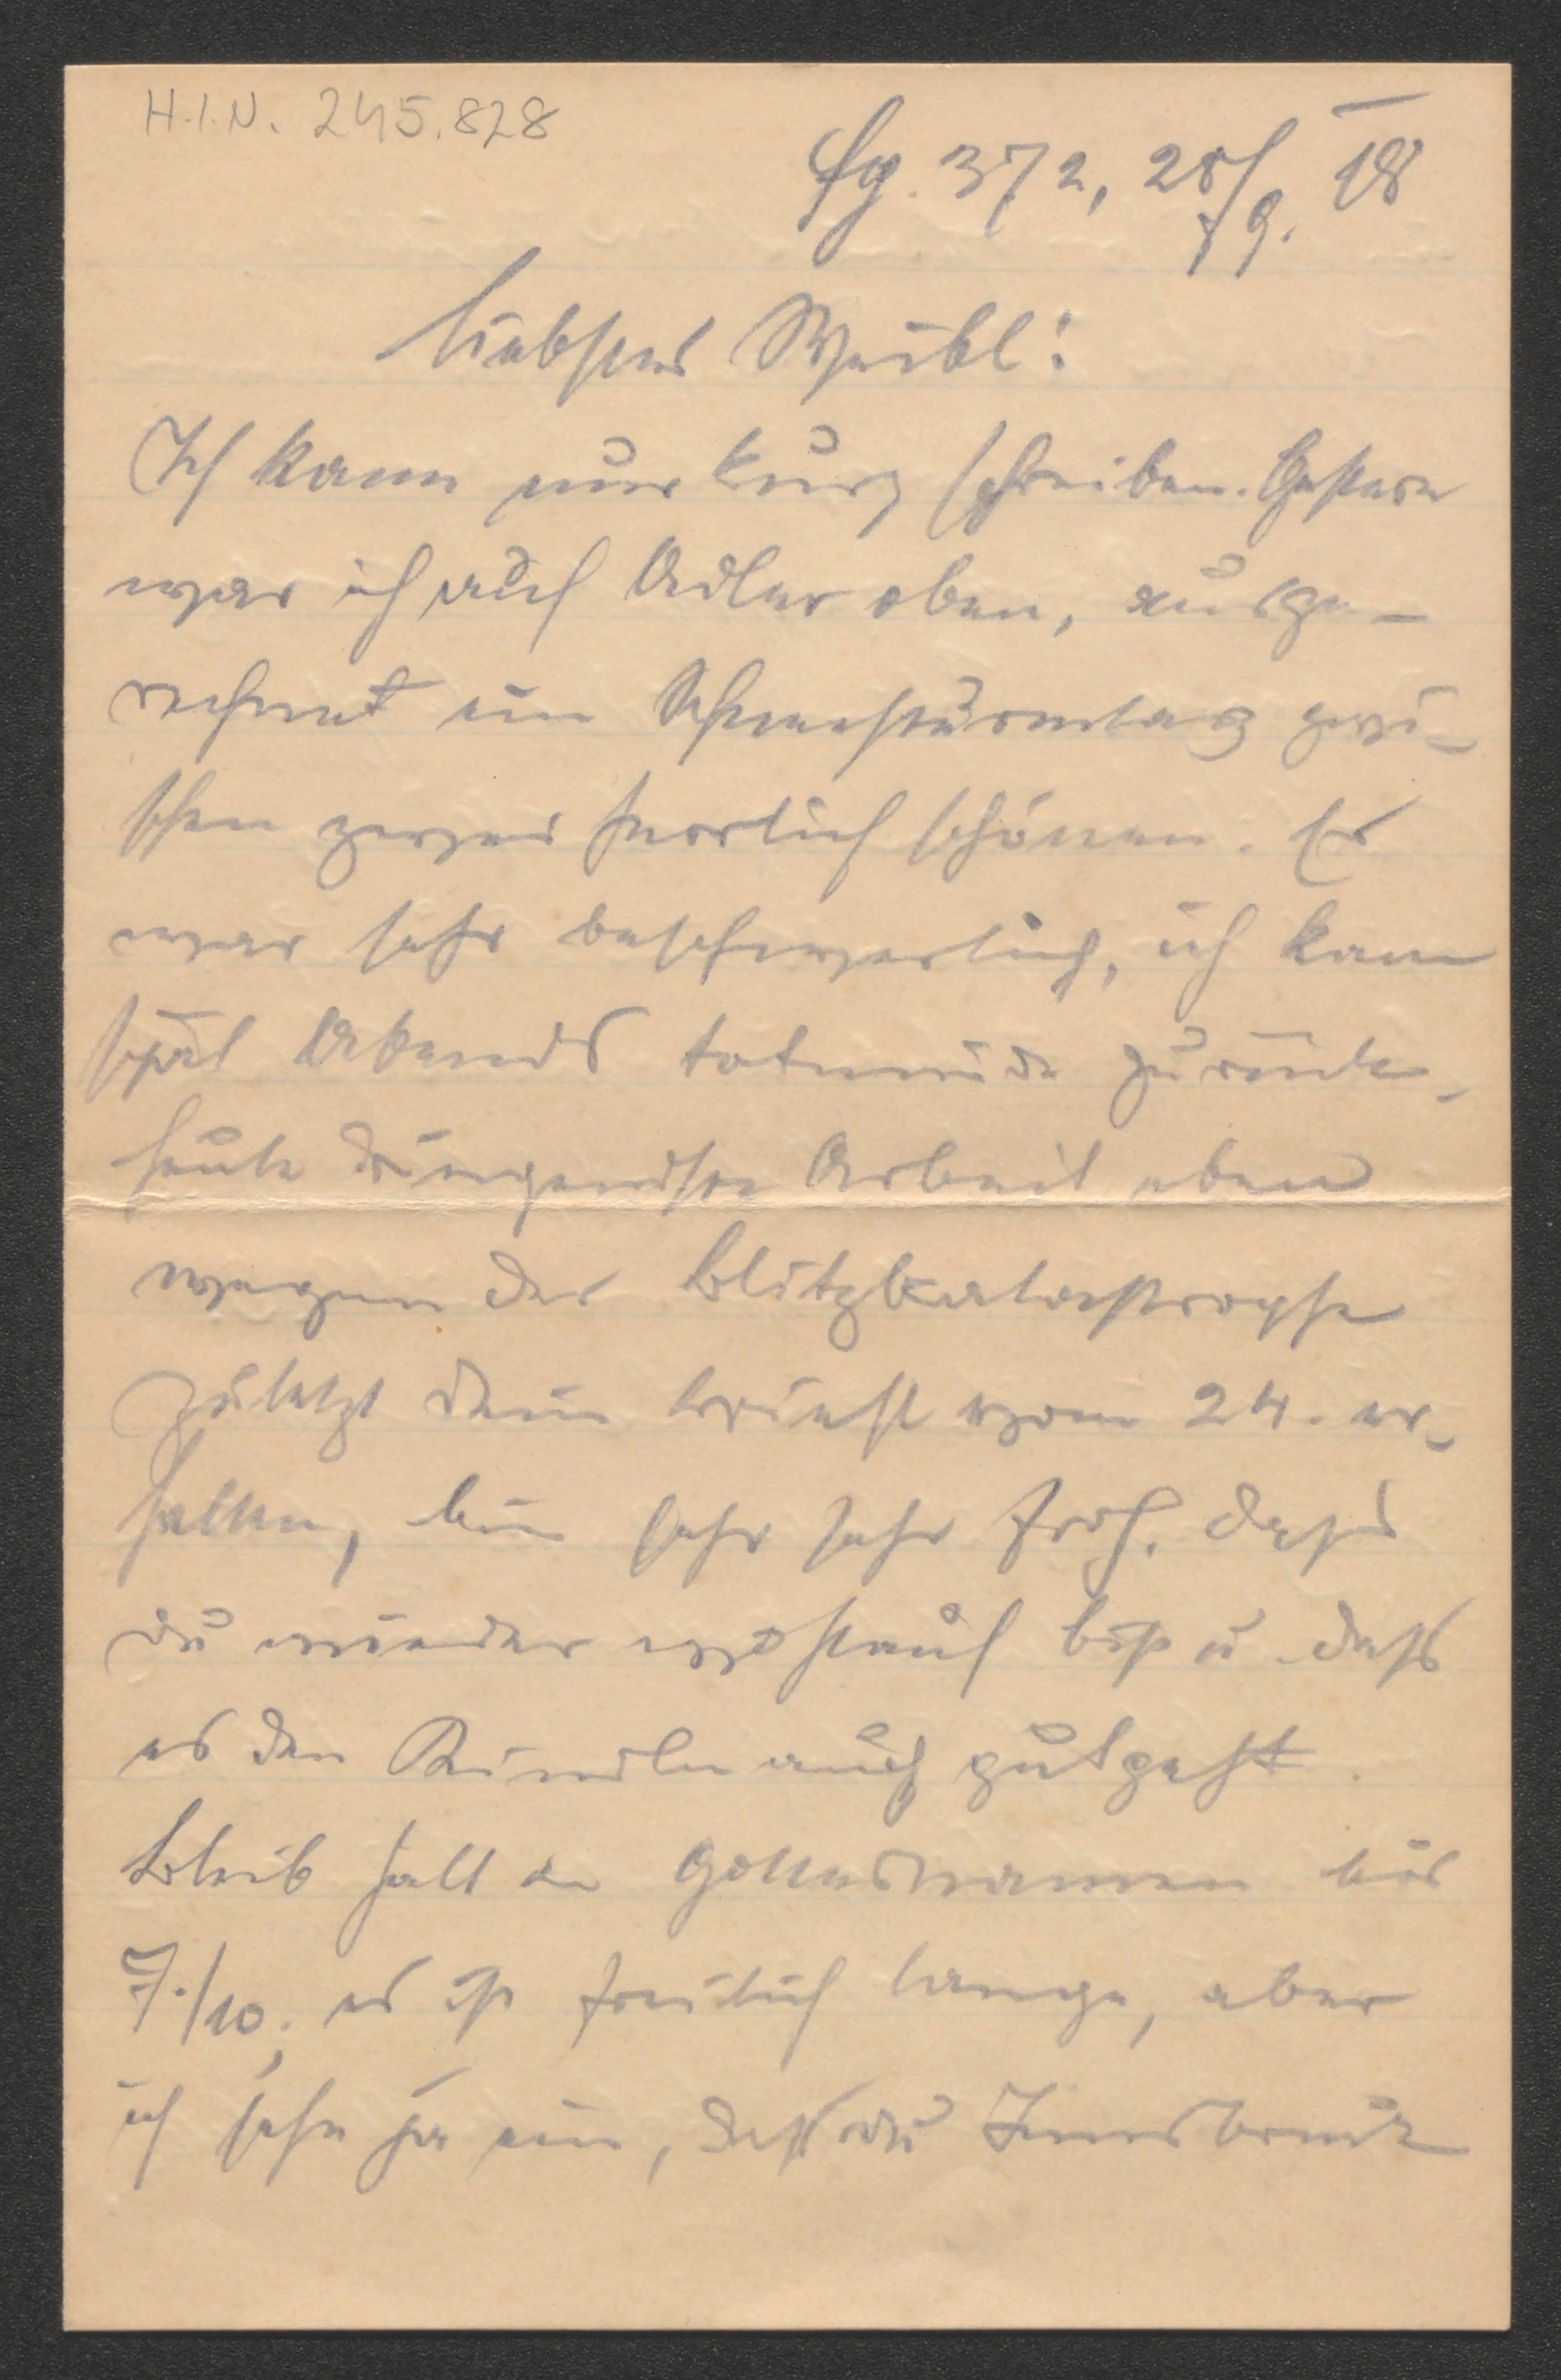 H.I.N. 245.828
fg. 372, 28/9. 18
Liebstes Weibl!
Ich kann nur kurz schreiben. Gestern
war ich auf Adler oben, ausge-
rechnet ein Schneesturmtag zwi-
schen zwei herrlich schönen. Es
war sehr beschwerlich, ich kam
spät Abends totmüde zurück,
heute dringendste Arbeit eben
wegen der Blitzkatastrophe
Zuletzt dein Briefl vom 24. er-
halten, bin sehr sehr froh, dass
du wieder wohlauf bist u. dass
es den Kindln auch gutgeht.
Bleib halt in Gottesnamen bis
7./10, es ist freilich lange, aber
ich sehe ja ein, dass du Innsbruck